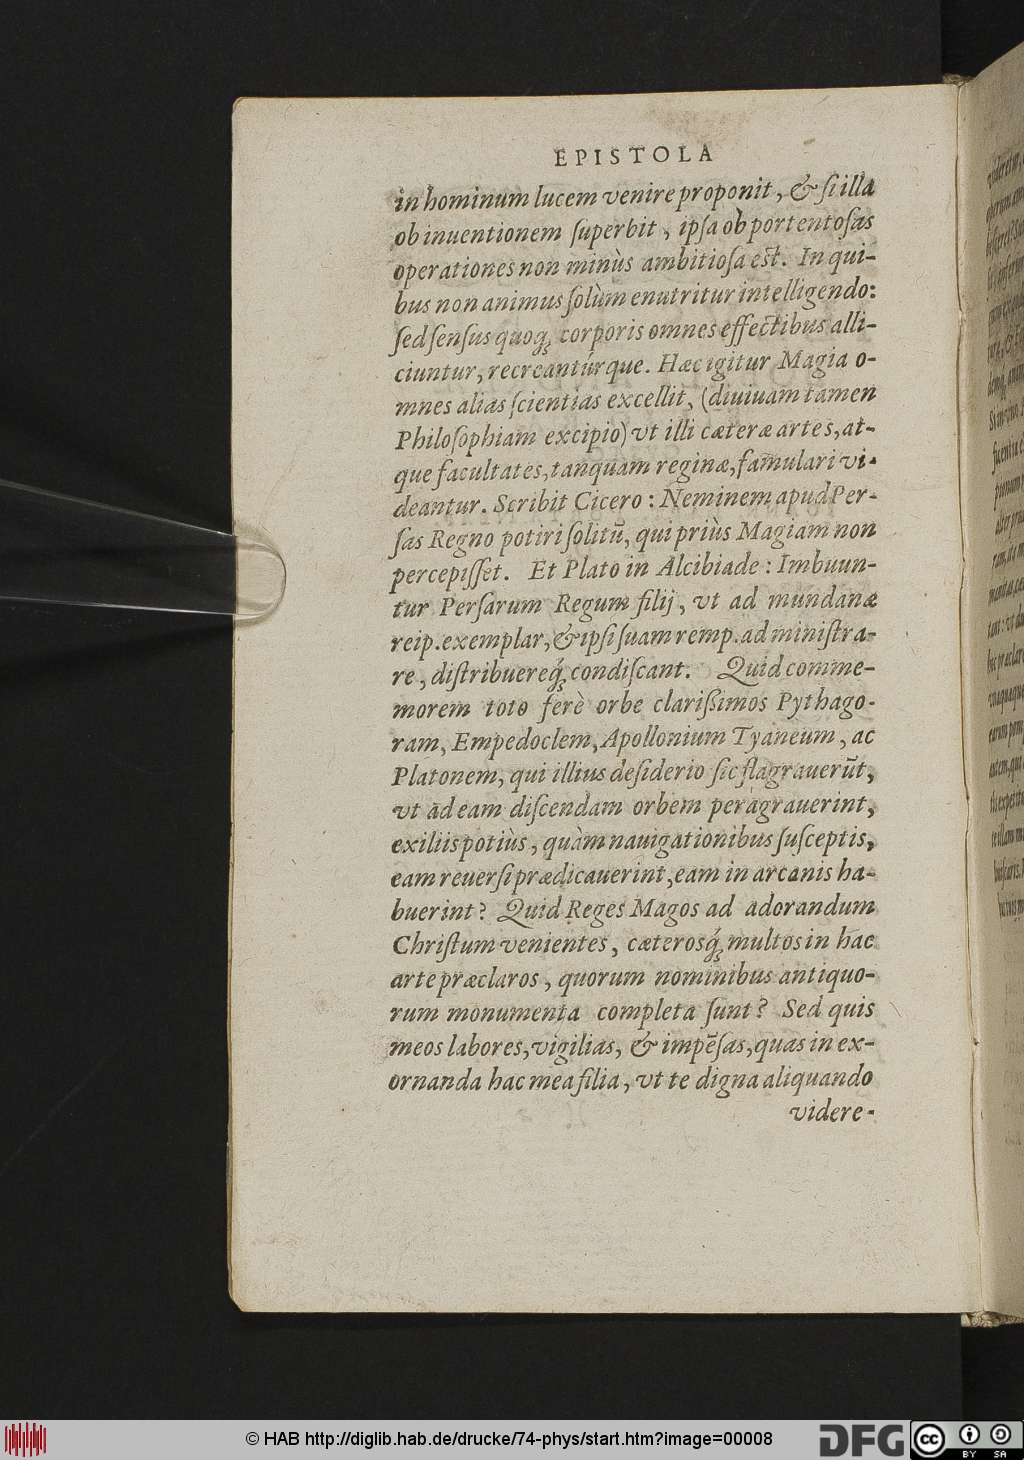 EPISTOLA
in hominum lucem venire proponit, & ſi illa
ob inuentionem ſuperbit, ipſa ob portentoſas
operationes non minùs ambitioſa est. In qui-
bus non animus ſolùm enutritur intelligendo:
ſed ſenſus quoq́; corporis omnes effectibus alli-
ciuntur, recreantúrque. Hæc igitur Magia o-
mnes alias ſcientias excellit, (diuiuam tamen
Philoſophiam excipio) vt illi cæteræ artes, at-
que facultates, tanquam reginæ, famulari vi-
deantur. Scribit Cicero: Neminem apud Per-
ſas Regno potiri ſolitũ, qui priùs Magiam non
percepiſſet. Et Plato in Alcibiade: Imbuun-
tur Perſarum Regum filij, vt ad mundanæ
reip. exemplar, & ipſi ſuam remp. adminiſtra-
re, diſtribuereq́; condiſcant. Quid comme-
morem toto ferè orbe clariſſimos Pythago-
ram, Empedoclem, Apollonium Tyaneum, ac
Platonem, qui illius deſiderio ſic flagrauerũt,
vt ad eam diſcendam orbem peragrauerint,
exiliis potiùs, quàm nauigationibus ſuſceptis,
eam reuerſi prædicauerint, eam in arcanis ha-
buerint? Quid Reges Magos ad adorandum
Chriſtum venientes, cæterosq́; multos in hac
arte præclaros, quorum nominibus antiquo-
rum monumenta completa ſunt? Sed quis
meos labores, vigilias, & impẽſas, quas in ex-
ornanda hac mea filia, vt te digna aliquando
videre-
© HAB http://diglib.hab.de/drucke/74-phys/start.htm?image=00008
DFG
cc BY SA